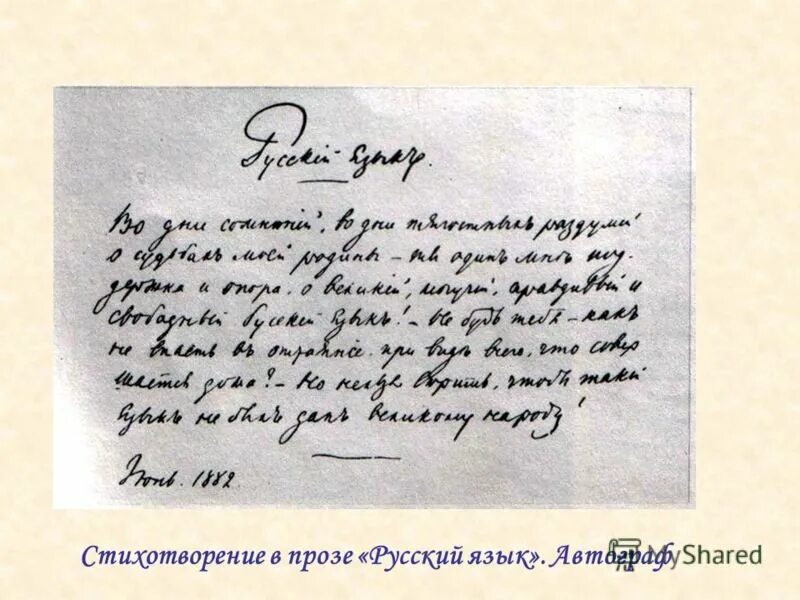 Русскій языкъ.
Во дни сомнѣній, во дни тягостныхъ раздумій
о судьбахъ моей родины – ты одинъ мнѣ под
держка и опора, о великій, могучій, правдивый и
свободный Русскій Языкъ! – Не будь тебя – какъ
не впасть въ отчаяніе при видѣ всего, что совер
шается дома? – Но нельзя вѣрить, чтобы такой
языкъ не былъ данъ великому народу!
Іюнь. 1882
Стихотворение в прозе «Русский язык». Автограф
MyShared